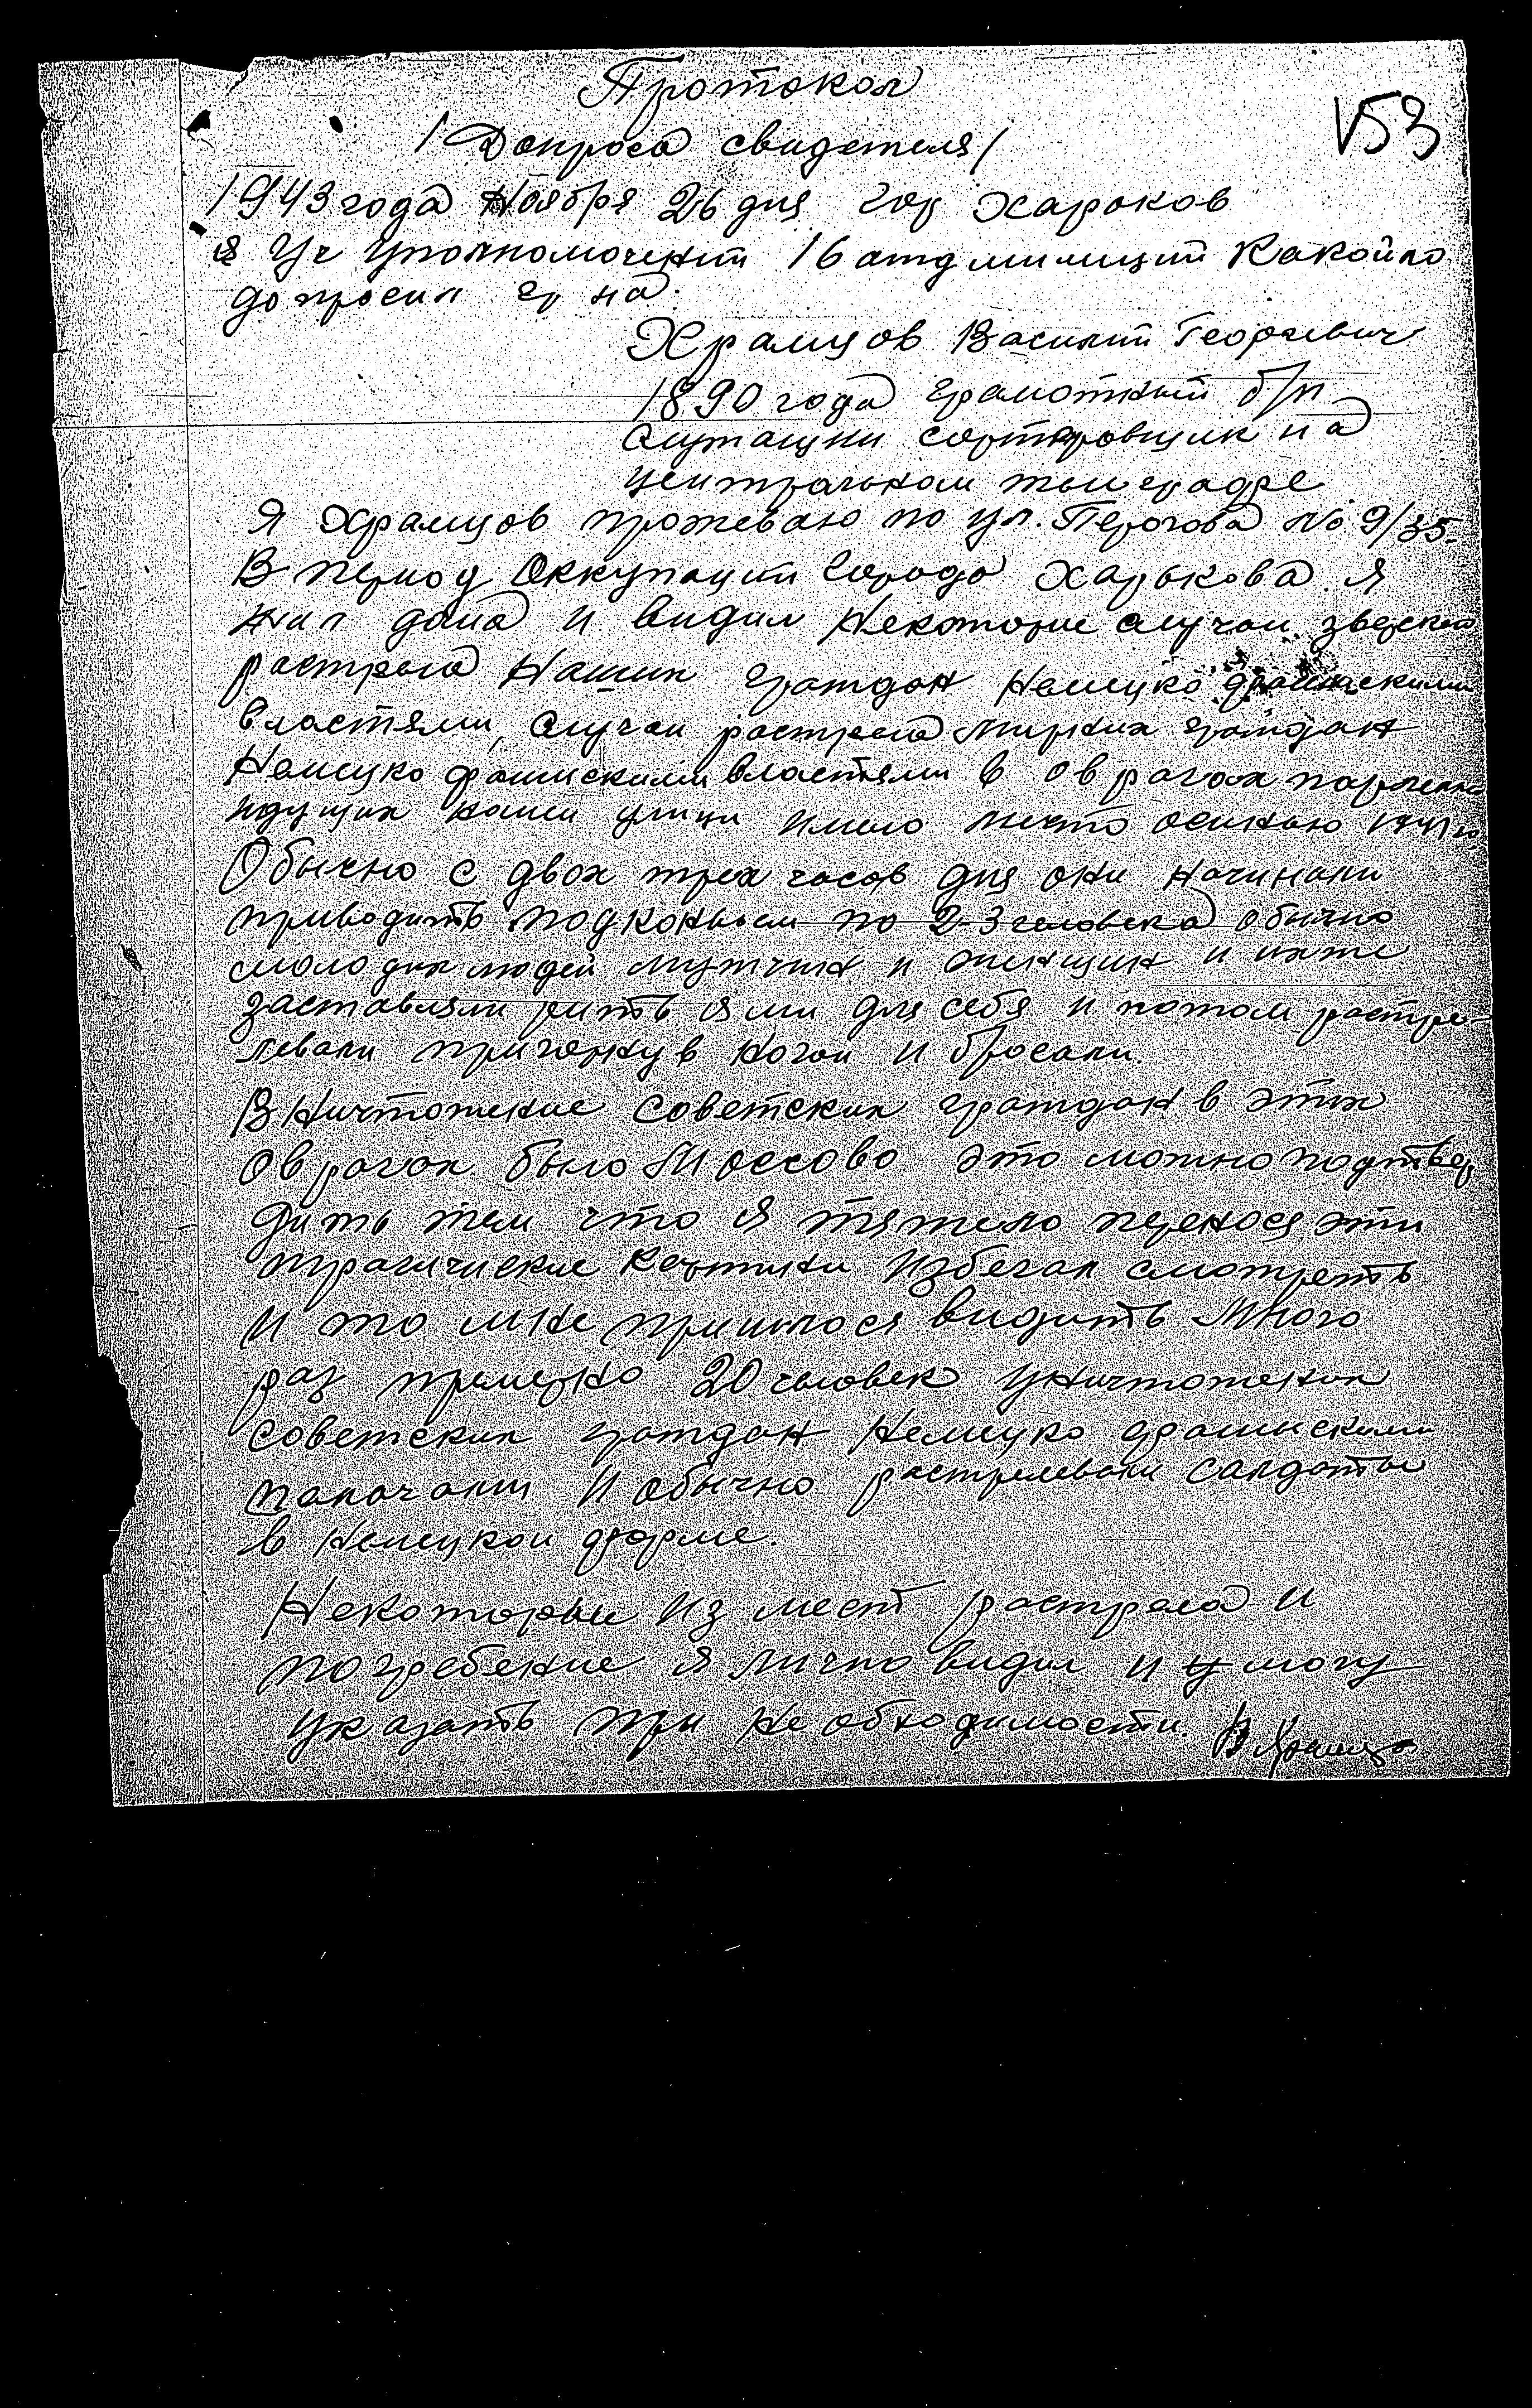 Протокол
/Допроса свидетеля/
153
1943 года Ноября 26 дня гор Харьков
я Уч Уполномочений 16 отд милиций Какойло
допросил гр на.
Храмцов Василий Георгиевич
1890 года грамотный б/п
служащий сортировщик на
центральном телеграфе
Я Храмцов проживаю по ул. Перогова No 9/35.
В период Оккупаций города Харькова я
жил дома и видил Некоторые случаи зверского
растрела Наших граждан Немецко фашискими
властями, случаи растрела мирних граждан
Немецко фашискими властями в оврагах
идущих нашей улици имело место осинью 1941 го
Обычно с двох трех часов дня они начинали
приводить под конвоем по 2-3 человека обычно
молодих людей мужчин и женщин и
заставляли рить ями для себя и потом растре-
левали и бросали.
Вничтожение советских граждан в этих
оврагах было Массово это можно подтвер
дить тем что я тяжело перенося эти
трагические картини избегал смотреть
и то мне пришлося видить Много
раз примерно 20 человек уничтожених
советских граждан Немецко фашискими
палачами и обычно растрелевали салдаты
в Немецкой форме.
Некоторые из мест растрела и
погребение я лично видил и могу
указать при необходимости. В Храмцов